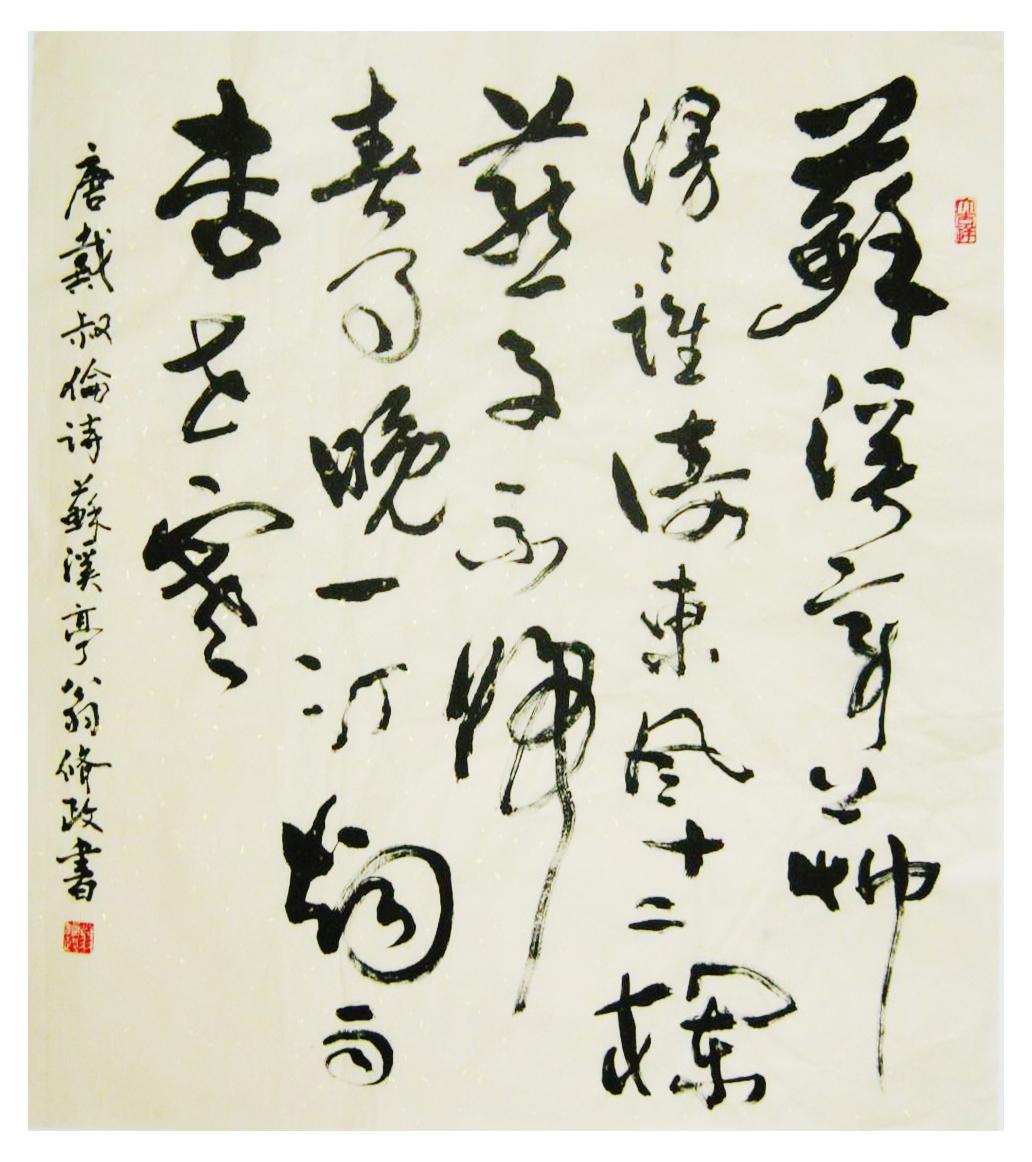 蘇溪亭上艸
漫〻誰倚東风十二欄
燕子不歸
春事晚一汀烟雨
杏花寒
唐戴叔倫詩蘇溪亭翁脩政書